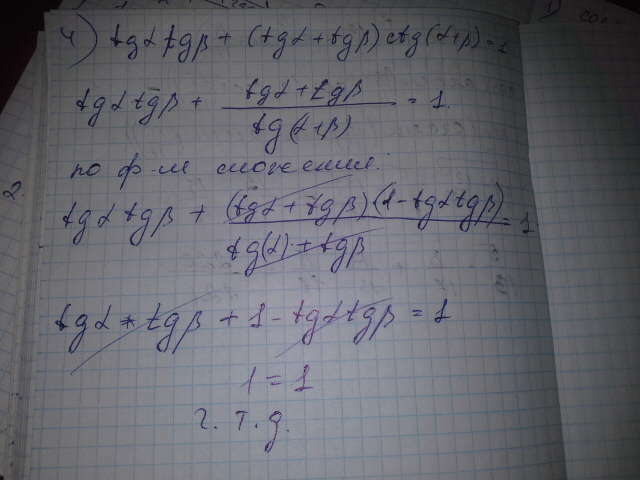 4) tgα tgβ + (tgα + tgβ) ctg(α+β) = 1
tgα tgβ + (tgα + tgβ) / tg(α+β) = 1.
по ф-ле сложения:
2.
tgα tgβ + (tgα + tgβ)(1 - tgα tgβ) / tg(α) + tgβ = 1
tgα * tgβ + 1 - tgα tgβ = 1
1 = 1
ч. т. д.